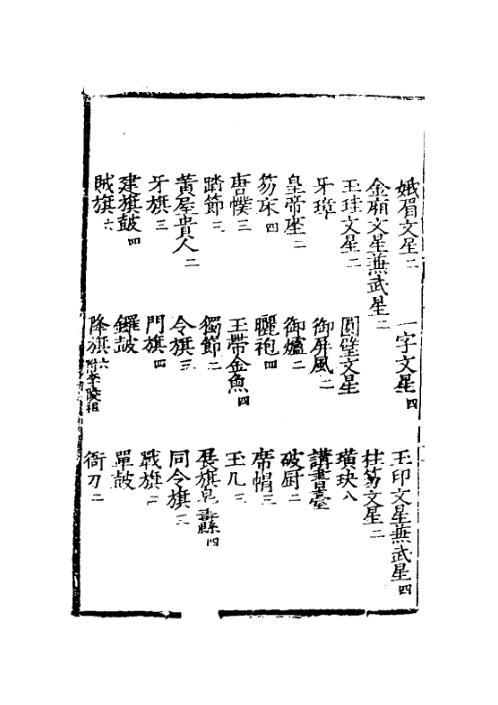 娥眉文星二 一字文星四 玉印文星兼武星四
金廂文星兼武星二 柱笏文星二
玉珪文星二 圓璧文星 璜玦八
牙璋 御屏風二 講書臺
皇帝座二 御爐二 破厨二
笏床四 曬袍四 席帽三
唐幞三 玉帶金魚四 玉几三
踏節三 獨節二 展旗皂纛四
黃屋貴人二 令旗三 同令旗二
牙旗三 門旗四 戰旗二
建旗鼓四 鑼鼓 單鼓
賊旗六 降旗六附李陵祖 衙刀二